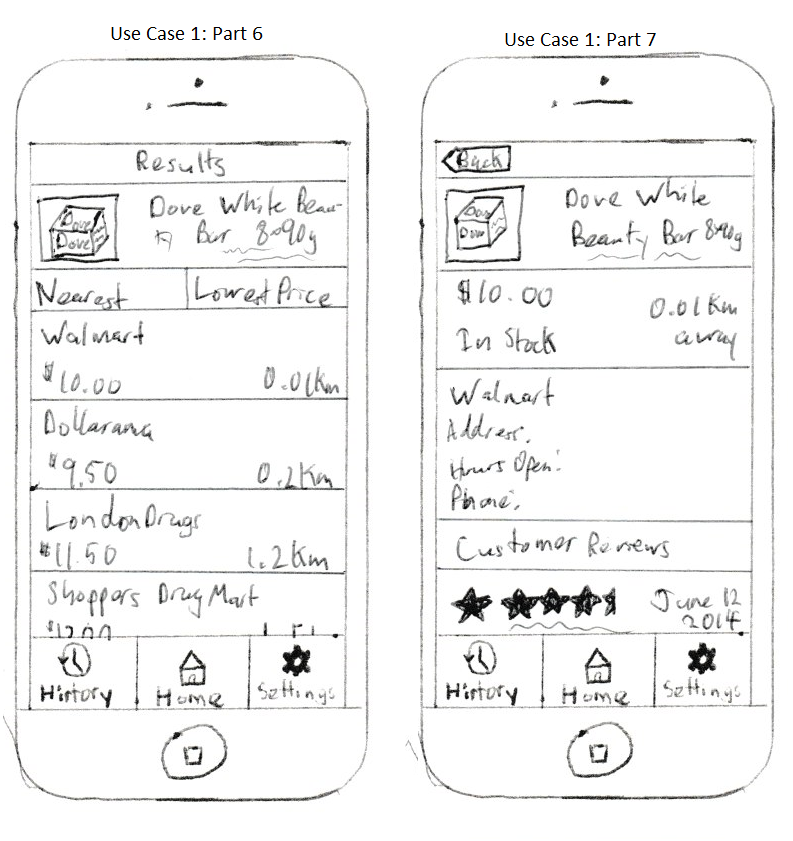 Use Case 1: Part 6
Results
Dove
Dove
Dove White Beau-
ty Bar 8x90g
Nearest
Lowest Price
Walmart
$10.00
0.01Km
Dollarama
$9.50
0.2Km
London Drugs
$11.50
1.2Km
Shoppers Drug Mart
History
Home
Settings
Use Case 1: Part 7
Back
Dove
Dove White
Beauty Bar 8x90g
$10.00
0.01Km
In Stock
away
Walmart
Address:
Hours Open:
Phone:
Customer Reviews
June 12
2014
History
Home
Settings